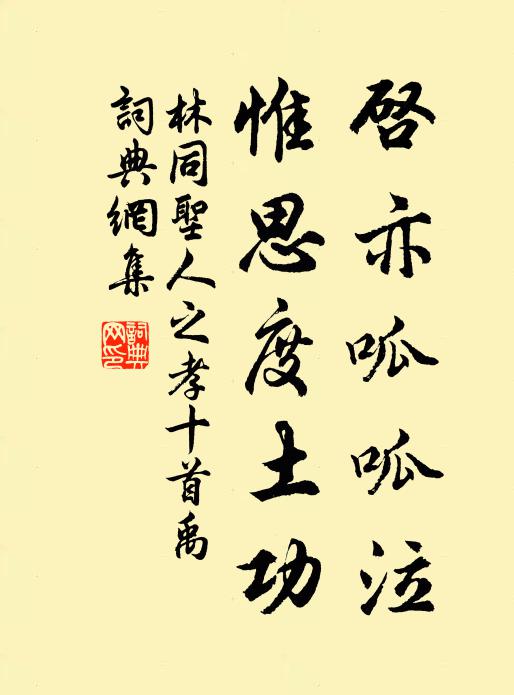 啓亦呱呱泣
惟思度土功
林同聖人之孝十首禹
詞典網集
詞典網印